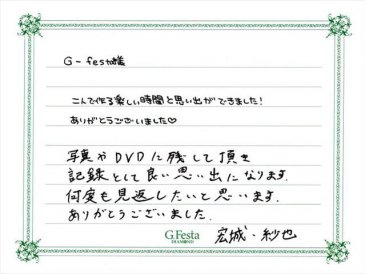 G-festa様
二人で作る楽しい時間と思い出ができました!
ありがとうございました♡
写真やDVDに残して頂き
記録として良い思い出になります。
何度も見返したいと思います。
ありがとうございました。
G.Festa
DIAMOND
宏城・紗也